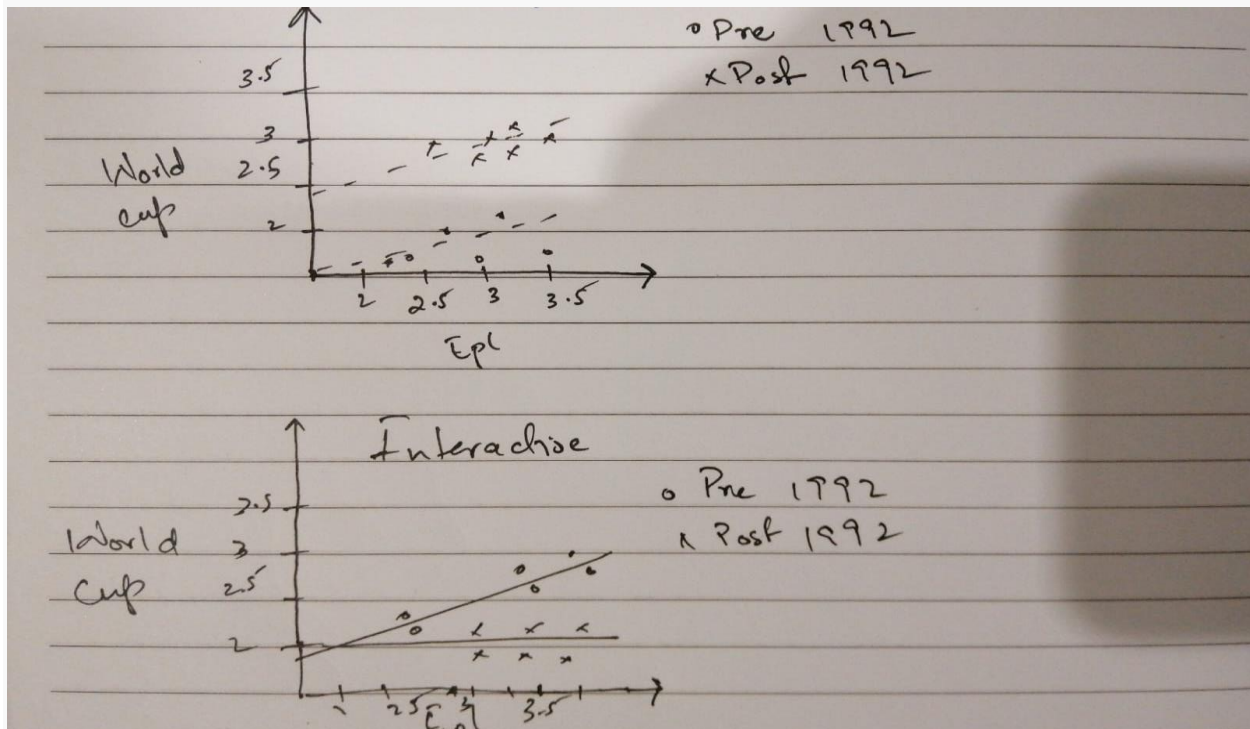 o Pre 1992
x Post 1992
3.5
3
World 2.5
cup
2
2 2.5 3 3.5
Epl
Interactive
o Pre 1992
x Post 1992
3.5
World 3
Cup 2.5
2
2.5 3 3.5